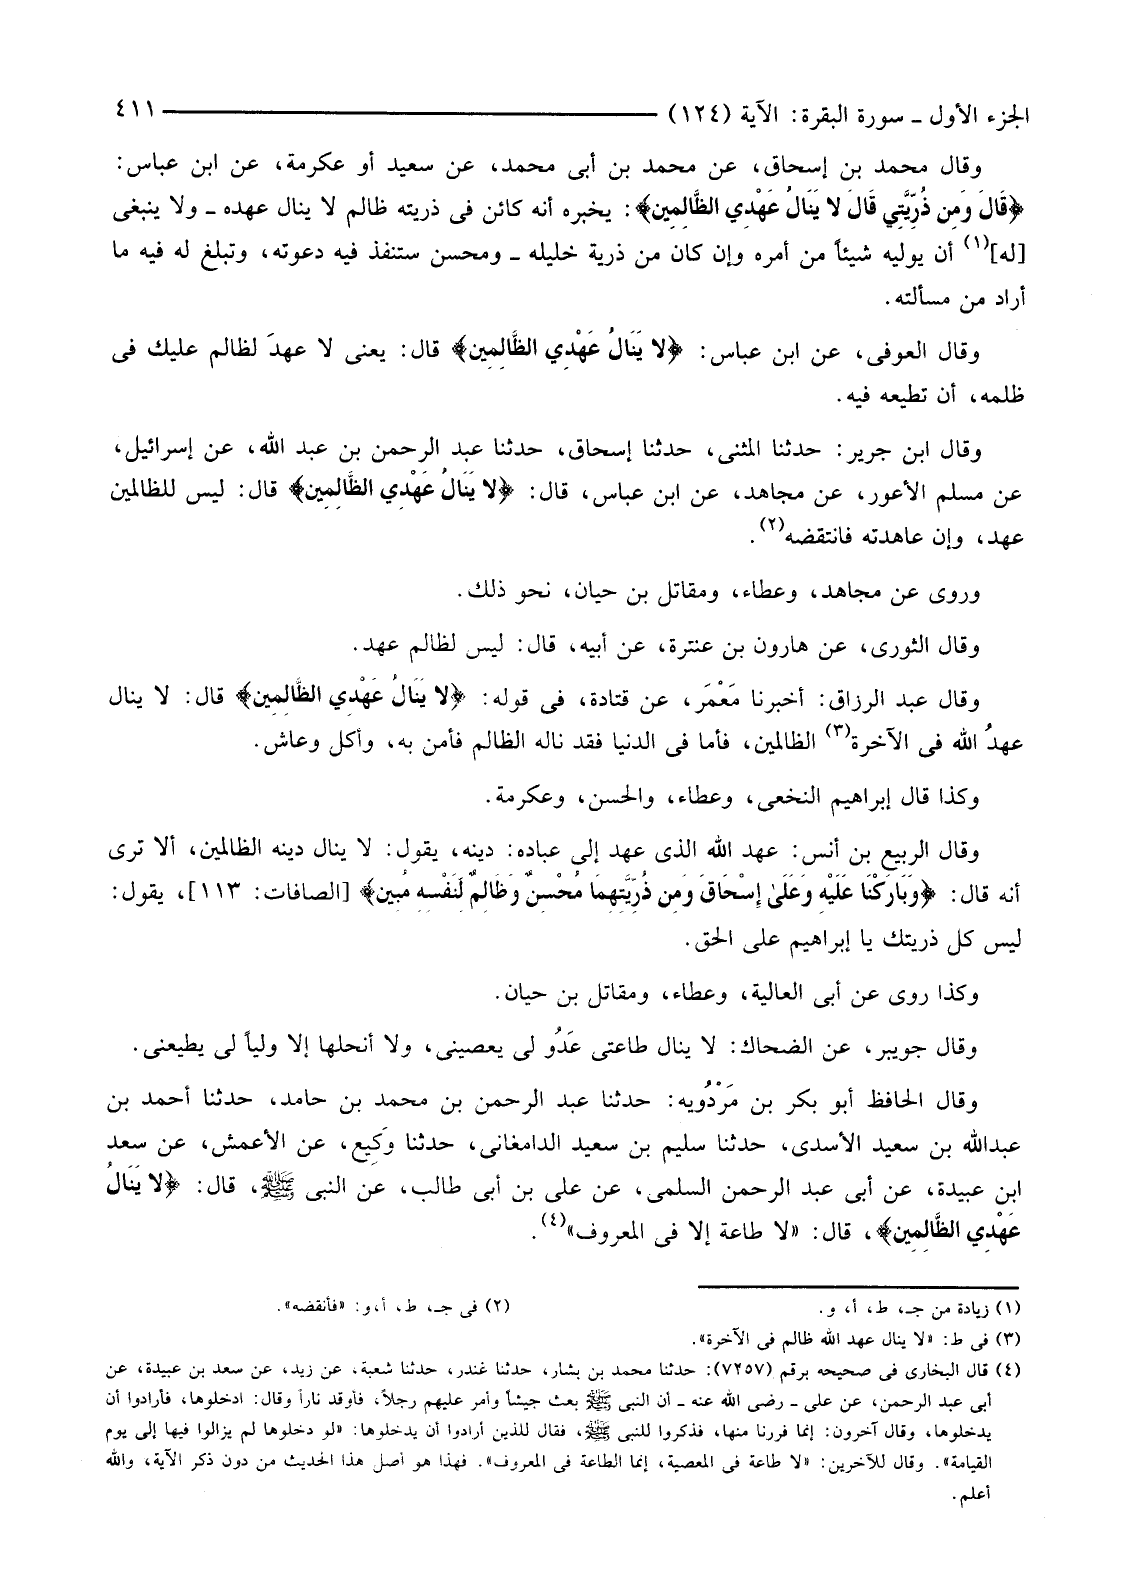 الجزء الأول ـ سورة البقرة: الآية (١٢٤) ٤١١
وقال محمد بن إسحاق، عن محمد بن أبى محمد، عن سعيد أو عكرمة، عن ابن عباس:
﴿قَالَ وَمِن ذُرِّيَّتِي قَالَ لا يَنَالُ عَهْدِي الظَّالِمِين﴾: يخبره أنه كائن فى ذريته ظالم لا ينال عهده ـ ولا ينبغى
[له](١) أن يوليه شيئاً من أمره وإن كان من ذرية خليله ـ ومحسن ستنفذ فيه دعوته، وتبلغ له فيه ما
أراد من مسألته.
وقال العوفى، عن ابن عباس: ﴿لا يَنَالُ عَهْدِي الظَّالِمِين﴾ قال: يعنى لا عهدَ لظالم عليك فى
ظلمه، أن تطيعه فيه.
وقال ابن جرير: حدثنا المثنى، حدثنا إسحاق، حدثنا عبد الرحمن بن عبد الله، عن إسرائيل،
عن مسلم الأعور، عن مجاهد، عن ابن عباس، قال: ﴿لا يَنَالُ عَهْدِي الظَّالِمِين﴾ قال: ليس للظالمين
عهد، وإن عاهدته فانتقضه(٢).
وروى عن مجاهد، وعطاء، ومقاتل بن حيان، نحو ذلك.
وقال الثورى، عن هارون بن عنترة، عن أبيه، قال: ليس لظالم عهد.
وقال عبد الرزاق: أخبرنا مَعْمَر، عن قتادة، فى قوله: ﴿لا يَنَالُ عَهْدِي الظَّالِمِين﴾ قال: لا ينال
عهدُ الله فى الآخرة(٣) الظالمين، فأما فى الدنيا فقد ناله الظالم فأمن به، وأكل وعاش.
وكذا قال إبراهيم النخعى، وعطاء، والحسن، وعكرمة.
وقال الربيع بن أنس: عهد الله الذى عهد إلى عباده: دينه، يقول: لا ينال دينه الظالمين، ألا ترى
أنه قال: ﴿وَبَارَكْنَا عَلَيْهِ وَعَلَىٰ إِسْحَاقَ وَمِن ذُرِّيَّتِهِمَا مُحْسِنٌ وَظَالِمٌ لِّنَفْسِهِ مُبِين﴾ [الصافات: ١١٣]، يقول:
ليس كل ذريتك يا إبراهيم على الحق.
وكذا روى عن أبى العالية، وعطاء، ومقاتل بن حيان.
وقال جويبر، عن الضحاك: لا ينال طاعتى عَدُو لى يعصينى، ولا أنحلها إلا ولياً لى يطيعنى.
وقال الحافظ أبو بكر بن مَرْدُويه: حدثنا عبد الرحمن بن محمد بن حامد، حدثنا أحمد بن
عبدالله بن سعيد الأسدى، حدثنا سليم بن سعيد الدامغانى، حدثنا وَكِيع، عن الأعمش، عن سعد
ابن عبيدة، عن أبى عبد الرحمن السلمى، عن على بن أبى طالب، عن النبى ﷺ، قال: ﴿لا يَنَالُ
عَهْدِي الظَّالِمِين﴾، قال: «لا طاعة إلا فى المعروف»(٤).
(١) زيادة من جـ، ط، أ، و. (٢) فى جـ، ط، أ،و: «فأنقضه».
(٣) فى ط: «لا ينال عهد الله ظالم فى الآخرة».
(٤) قال البخارى فى صحيحه برقم (٧٢٥٧): حدثنا محمد بن بشار، حدثنا غندر، حدثنا شعبة، عن زيد، عن سعد بن عبيدة، عن
أبى عبد الرحمن، عن على ـ رضى الله عنه ـ أن النبى ﷺ بعث جيشاً وأمر عليهم رجلاً، فأوقد ناراً وقال: ادخلوها، فأرادوا أن
يدخلوها، وقال آخرون: إنما فررنا منها، فذكروا للنبى ﷺ، فقال للذين أرادوا أن يدخلوها: «لو دخلوها لم يزالوا فيها إلى يوم
القيامة». وقال للآخرين: «لا طاعة فى المعصية، إنما الطاعة فى المعروف». فهذا هو أصل هذا الحديث من دون ذكر الآية، والله
أعلم.